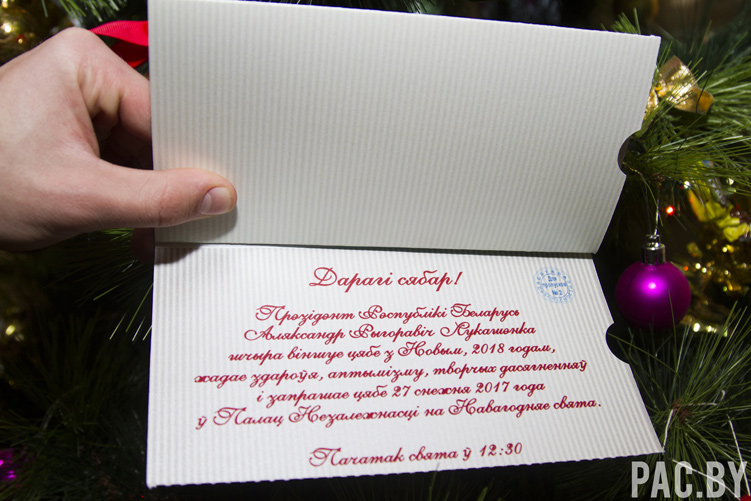 Дарагі сябар!
Прэзідэнт Рэспублікі Беларусь
Аляксандр Рыгоравіч Лукашэнка
шчыра віншуе цябе з Новым, 2018 годам,
жадае здароўя, аптымізму, творчых дасягненняў
і запрашае цябе 27 снежня 2017 года
ў Палац Незалежнасці на Навагодняе свята.
Пачатак свята ў 12:30
PAC.BY